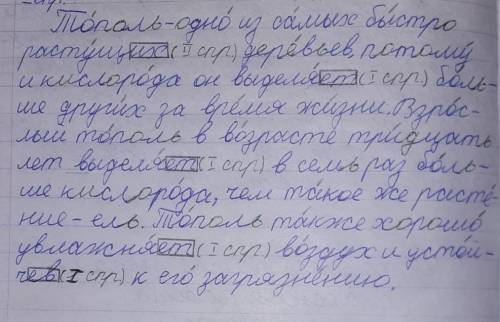 То́поль-одно́ из са́мых бы́стро
расту́щих (II спр) дере́вьев, потому́
и кислоро́да он выделя́ет (I спр) бо́ль-
ше други́х за вре́мя жи́зни. Взро́с-
лый то́поль в во́зрасте три́дцать
лет выделя́ет (I спр) в семь раз бо́ль-
ше кислоро́да, чем тако́е же расте́-
ние - ель. То́поль та́кже хорошо́
увлажня́ет (I спр) во́здух и усто́й-
чев (I спр) к его́ загрязне́нию.